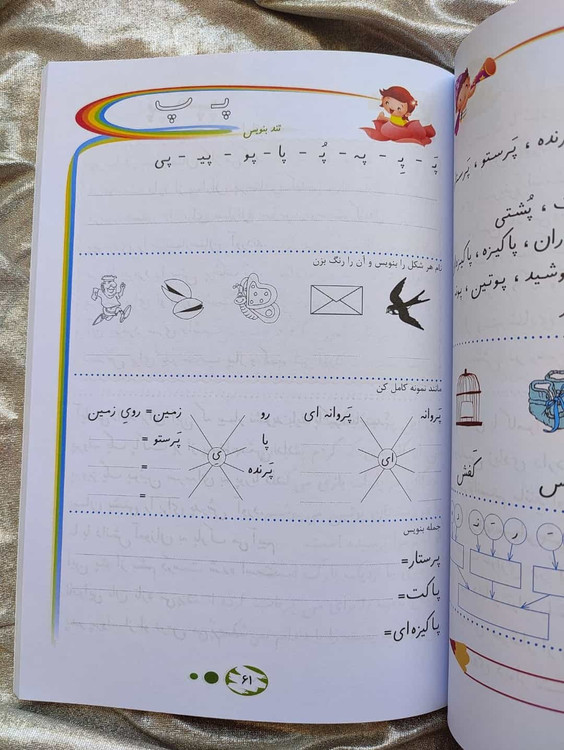 پـ پ
تند بنویس
پَ - پِ - په - پُ - پا - پو - پیـ - پی
نام هر شکل را بنویس و آن را رنگ بزن
مانند نمونه کامل کن
پَروانه
پَروانه ای
ای
رو
زمین= رویِ زمین
پا
پَرستو=
ی
پَرنده
=
=
جمله بنویس
پرستار=
پاکت=
پاکیزه ای=
۶۱
پَرستو ،
پُشتی
پاکیزه ،
پوتین ،
کَفش